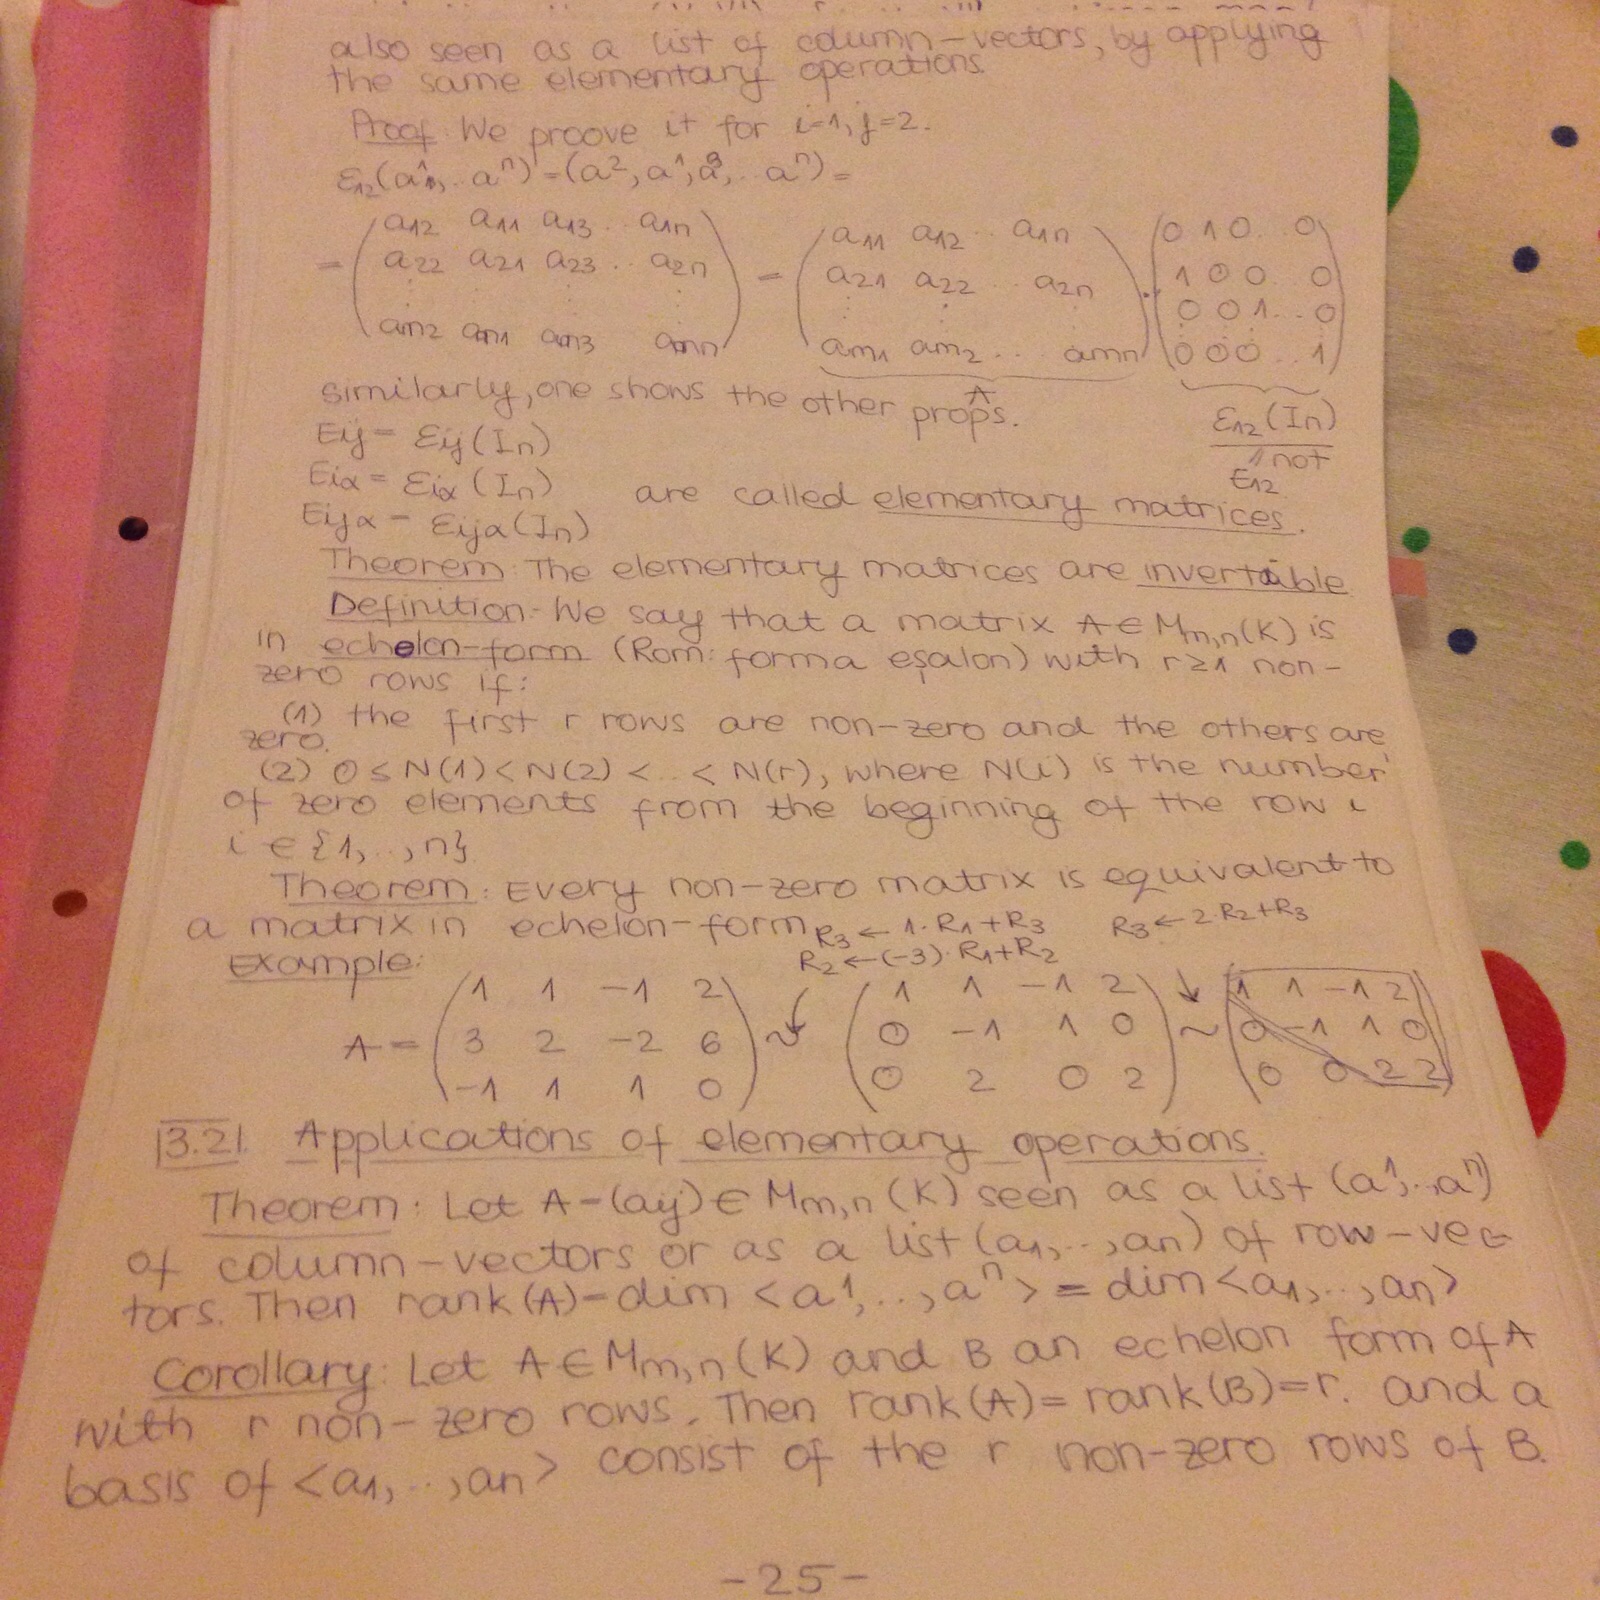 also seen as a list of column-vectors, by applying
the same elementary operations.
Proof: We proove it for i=1, j=2.
ε12(a^1, .. a^n) = (a^2, a^1, a^3, .. a^n) =
= (a12 a11 a13 .. a1n) = (a11 a12 .. a1n) · (0 1 0 .. 0)
(a22 a21 a23 .. a2n) (a21 a22 .. a2n) (1 0 0 .. 0)
(⋮ ⋮ ⋮ ⋮) (⋮ ⋮ ⋮) (0 0 1 .. 0)
(am2 am1 am3 amn) (am1 am2 .. amn) (0 0 0 .. 1)
A
similarly, one shows the other props.
ε12(In)
Eij = εij(In)
not
E12
Eiα = εiα(In)
are called elementary matrices.
Eijα = εijα(In)
Theorem: The elementary matrices are invertable
Definition: We say that a matrix A ∈ Mm,n(K) is
in echelon-form (Rom: forma eșalon) with r≥1 non-
zero rows if:
(1) the first r rows are non-zero and the others are
zero.
(2) 0 ≤ N(1) < N(2) < .. < N(r), where N(i) is the number
of zero elements from the beginning of the row i
i ∈ {1, .., n}
Theorem: Every non-zero matrix is equivalent to
a matrix in echelon-form
R3 ← 1·R1+R3 R3 ← 2·R2+R3
Example: R2 ← (-3)·R1+R2
(1 1 -1 2) (1 1 -1 2) (1 1 -1 2)
A = (3 2 -2 6) ~ (0 -1 1 0) ~ (0 -1 1 0)
(-1 1 1 0) (0 2 0 2) (0 0 2 2)
3.2. Applications of elementary operations.
Theorem: Let A=(aij) ∈ Mm,n(K) seen as a list (a^1, .., a^n)
of column-vectors or as a list (a1, .., an) of row-vec
tors. Then rank(A) = dim <a^1, .., a^n> = dim <a1, .., an>
Corollary: Let A ∈ Mm,n(K) and B an echelon form of A
with r non-zero rows. Then rank(A) = rank(B) = r. and a
basis of <a1, .., an> consist of the r non-zero rows of B.
-25-